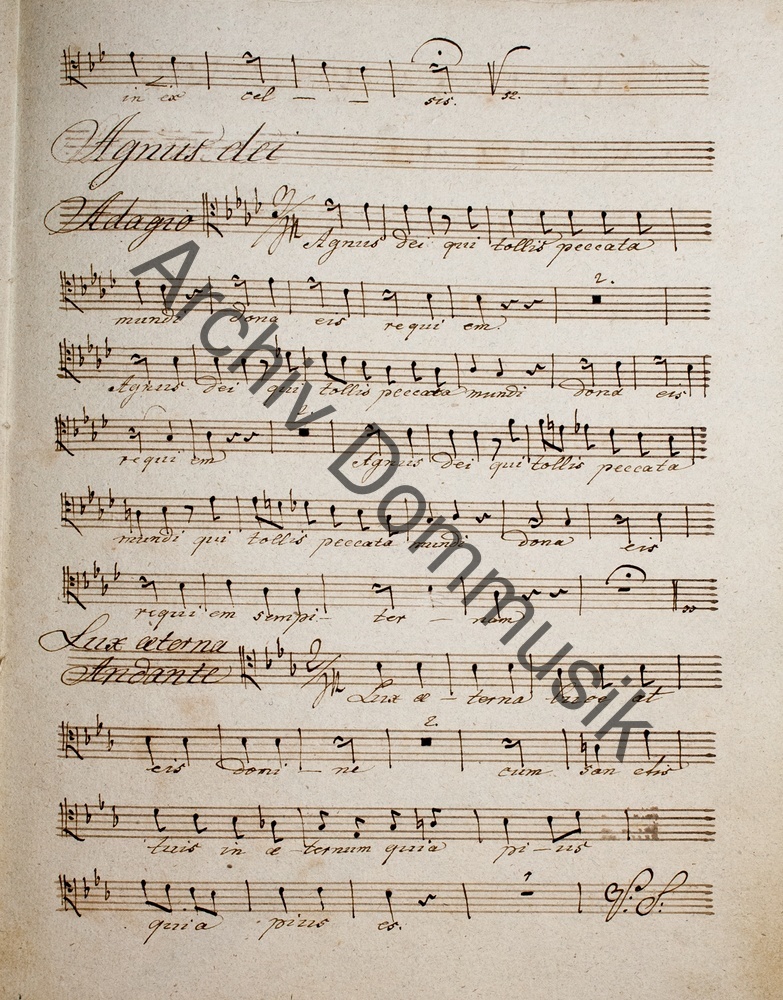 in ex cel - - sis. V S2.
Agnus dei
Adagio Agnus dei qui tollis peccata
2.
mundi dona eis requi em.
Agnus dei qui tollis peccata mundi dona eis
2.
requi em Agnus dei qui tollis peccata
mundi qui tollis peccata mundi dona eis
requi em sempi- ter - nam
Lux æterna
Andante
Lux æ - terna at
2.
eis domi - ne cum san ctis
tuis in æ ternum quia pi - us
1
quia pius es.
Archiv Dommusik